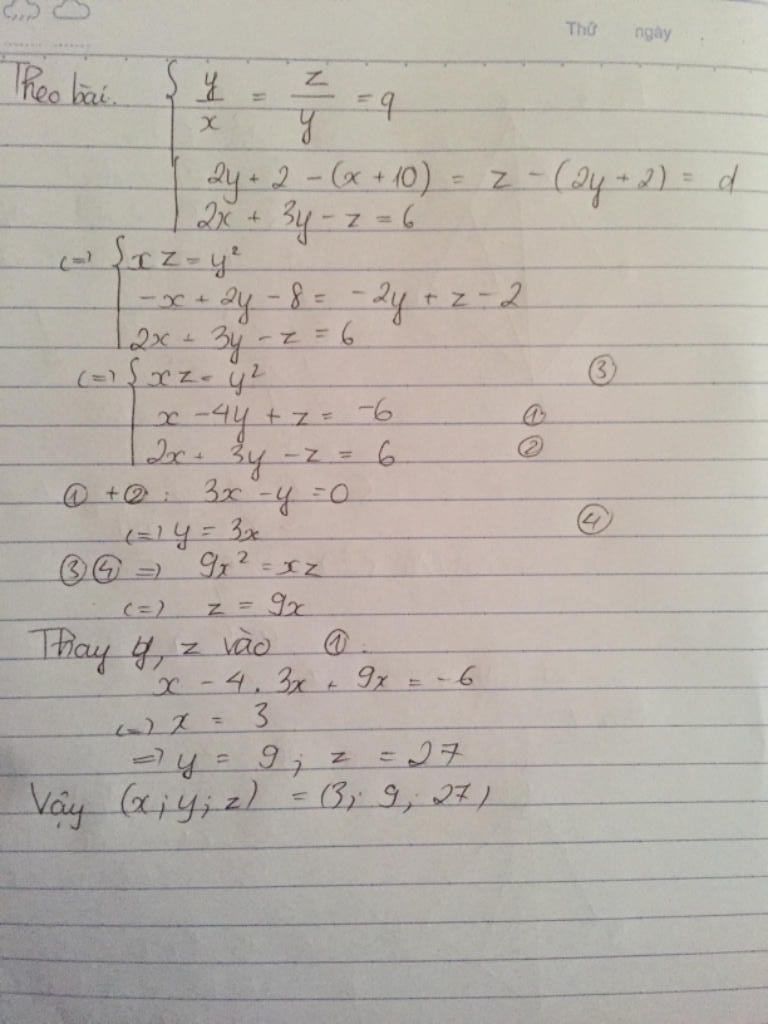 Thứ ngày
Theo bài. { y/x = z/y = q
2y + 2 - (x + 10) = z - (2y + 2) = d
2x + 3y - z = 6
(=) { xz = y²
-x + 2y - 8 = -2y + z - 2
2x + 3y - z = 6
(=) { xz = y² ③
x - 4y + z = -6 ①
2x + 3y - z = 6 ②
① + ② : 3x - y = 0
(=) y = 3x ④
③④ => 9x² = xz
(=) z = 9x
Thay y, z vào ① :
x - 4 . 3x + 9x = -6
(=) x = 3
=> y = 9 ; z = 27
Vậy (x ; y ; z) = (3 ; 9 ; 27)